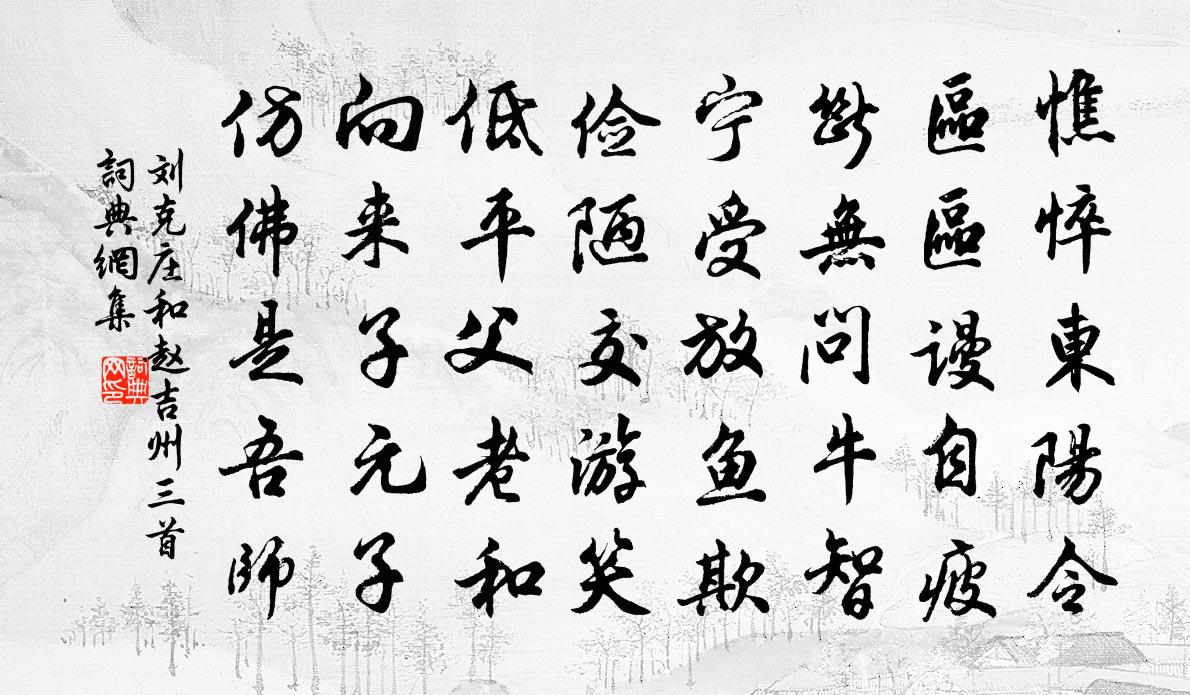 憔悴東陽令
區區謾自疲
斷無問牛智
宁受放鱼欺
俭陋交游笑
低平父老和
向来子元子
仿佛是吾師
刘克庄和赵吉州三首
詞典網集
詞典网印